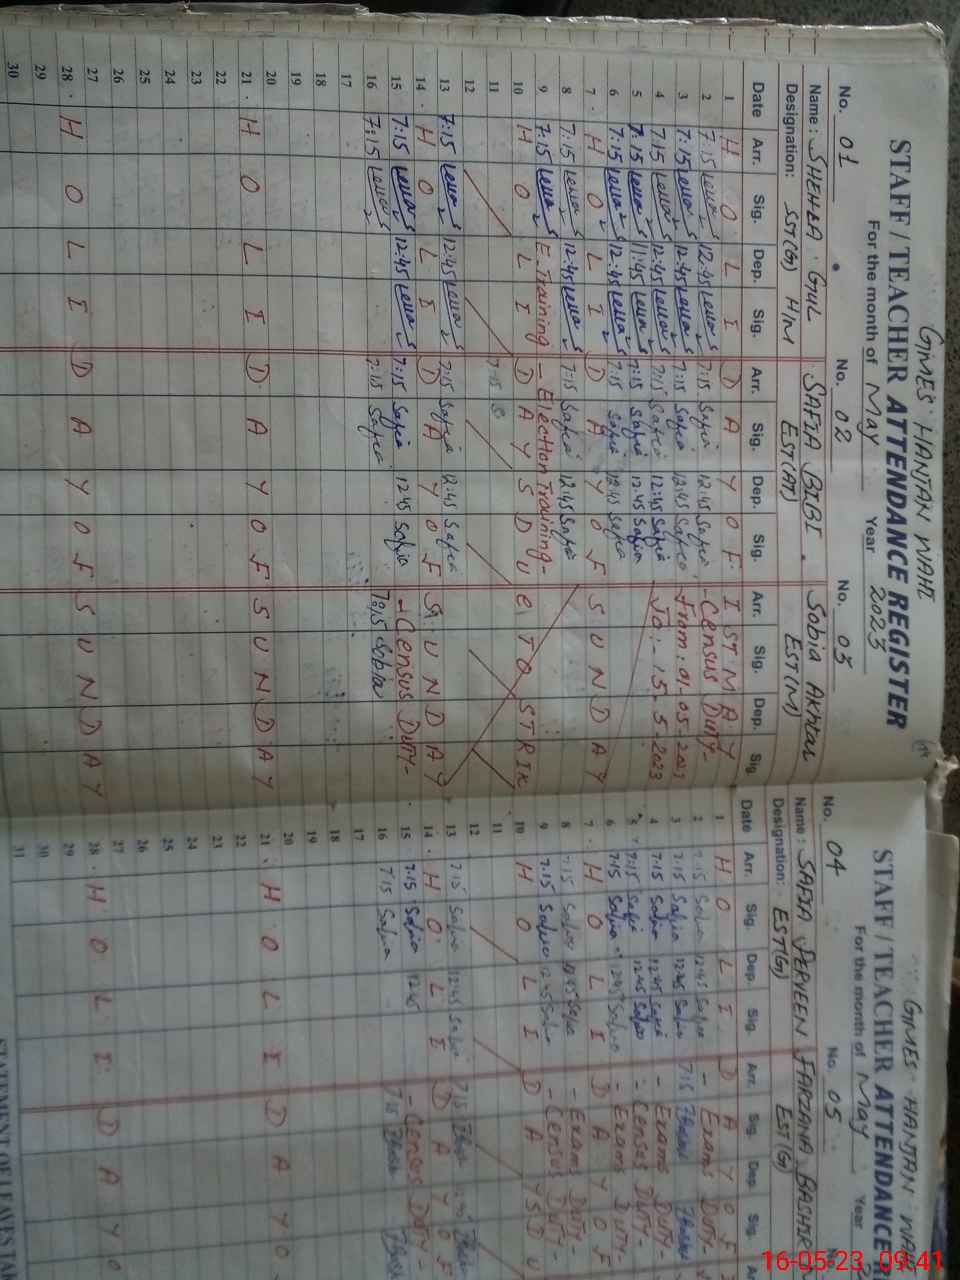 GMES HANJAN WAHI
STAFF / TEACHER ATTENDANCE REGISTER
For the month of May Year 2023
No. 01 No. 02 No. 03
Name: SHEHLA GUL SAFIA BIBI Sobia Akhtar
Designation: SST(G) HM EST(AT) EST(M)
Date Arr. Sig. Dep. Sig. Arr. Sig. Dep. Sig. Arr. Sig. Dep. Sig.
1 H O L I D A Y O F I ST M A Y
2 7:15 12:45 7:15 Safia 12:45 Safia -Census Duty-
3 7:15 12:45 7:15 Safia 12:45 Safia From: 01-05-2023
4 7:15 12:45 7:15 Safia 12:45 Safia To:- 15-5-2023
5 7:15 11:45 7:15 Safia 12:45 Safia
6 7:15 12:45 7:15 Safia 12:45 Safia
7 H O L I D A Y O F S U N D A Y
8 7:15 12:45 7:15 Safia 12:45 Safia
9 7:15 E.Training - Election Training-
10 H O L I D A Y S D U e T O STRIK
11 7:15
12
13 7:15 12:45 7:15 Safia 12:45 Safia
14 H O L I D A Y O F S U N D A Y
15 7:15 12:45 7:15 Safia 12:45 Safia -Census Duty-
16 7:15 7:15 Safia 7:15 Sobia
17
18
19
20
21 H O L I D A Y O F S U N D A Y
22
23
24
25
26
27
28 H O L I D A Y O F S U N D A Y
29
30
GMES HANJAN WAHI
STAFF / TEACHER ATTENDANCE R
For the month of May Year
No. 04 No. 05
Name: SAFIA PERVEEN FARZANA BASHIR
Designation: EST(G) EST(G)
Date Arr. Sig. Dep. Sig. Arr. Sig. Dep. Sig. Ar
1 H O L I D A Y O F
2 7:15 Safia 12:45 Safia - Exams Duty-
3 7:15 Safia 12:45 Safia 7:15
4 7:15 Safia 12:45 Safia - Exams Duty-
5 7:15 Safia 12:45 Safia - Census Duty-
6 7:15 Safia 12:45 Safia - Exams Duty-
7 H O L I D A Y O F
8 7:15 Safia 12:45 Safia - Exams Duty-
9 7:15 Safia 12:45 Safia - Census Duty-
10 H O L I D A Y S D U
11
12
13 7:15 Safia 12:45 Safia 7:15
14 H O L I D A Y O F
15 7:15 Safia 12:45 - Census Duty-
16 7:15 Safia 7:15
17
18
19
20
21 H O L I D A Y O
22
23
24
25
26
27
28 H O L I D A Y O
29
30
31
STATEMENT OF LEAVES TAK
16-05-23 09:41